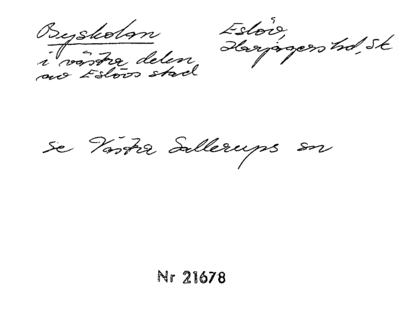 Byskolan
i västra delen
av Eslövs stad
Eslöv,
Harjagers hd, Sk
se Västra Sallerups sn
Nr 21678